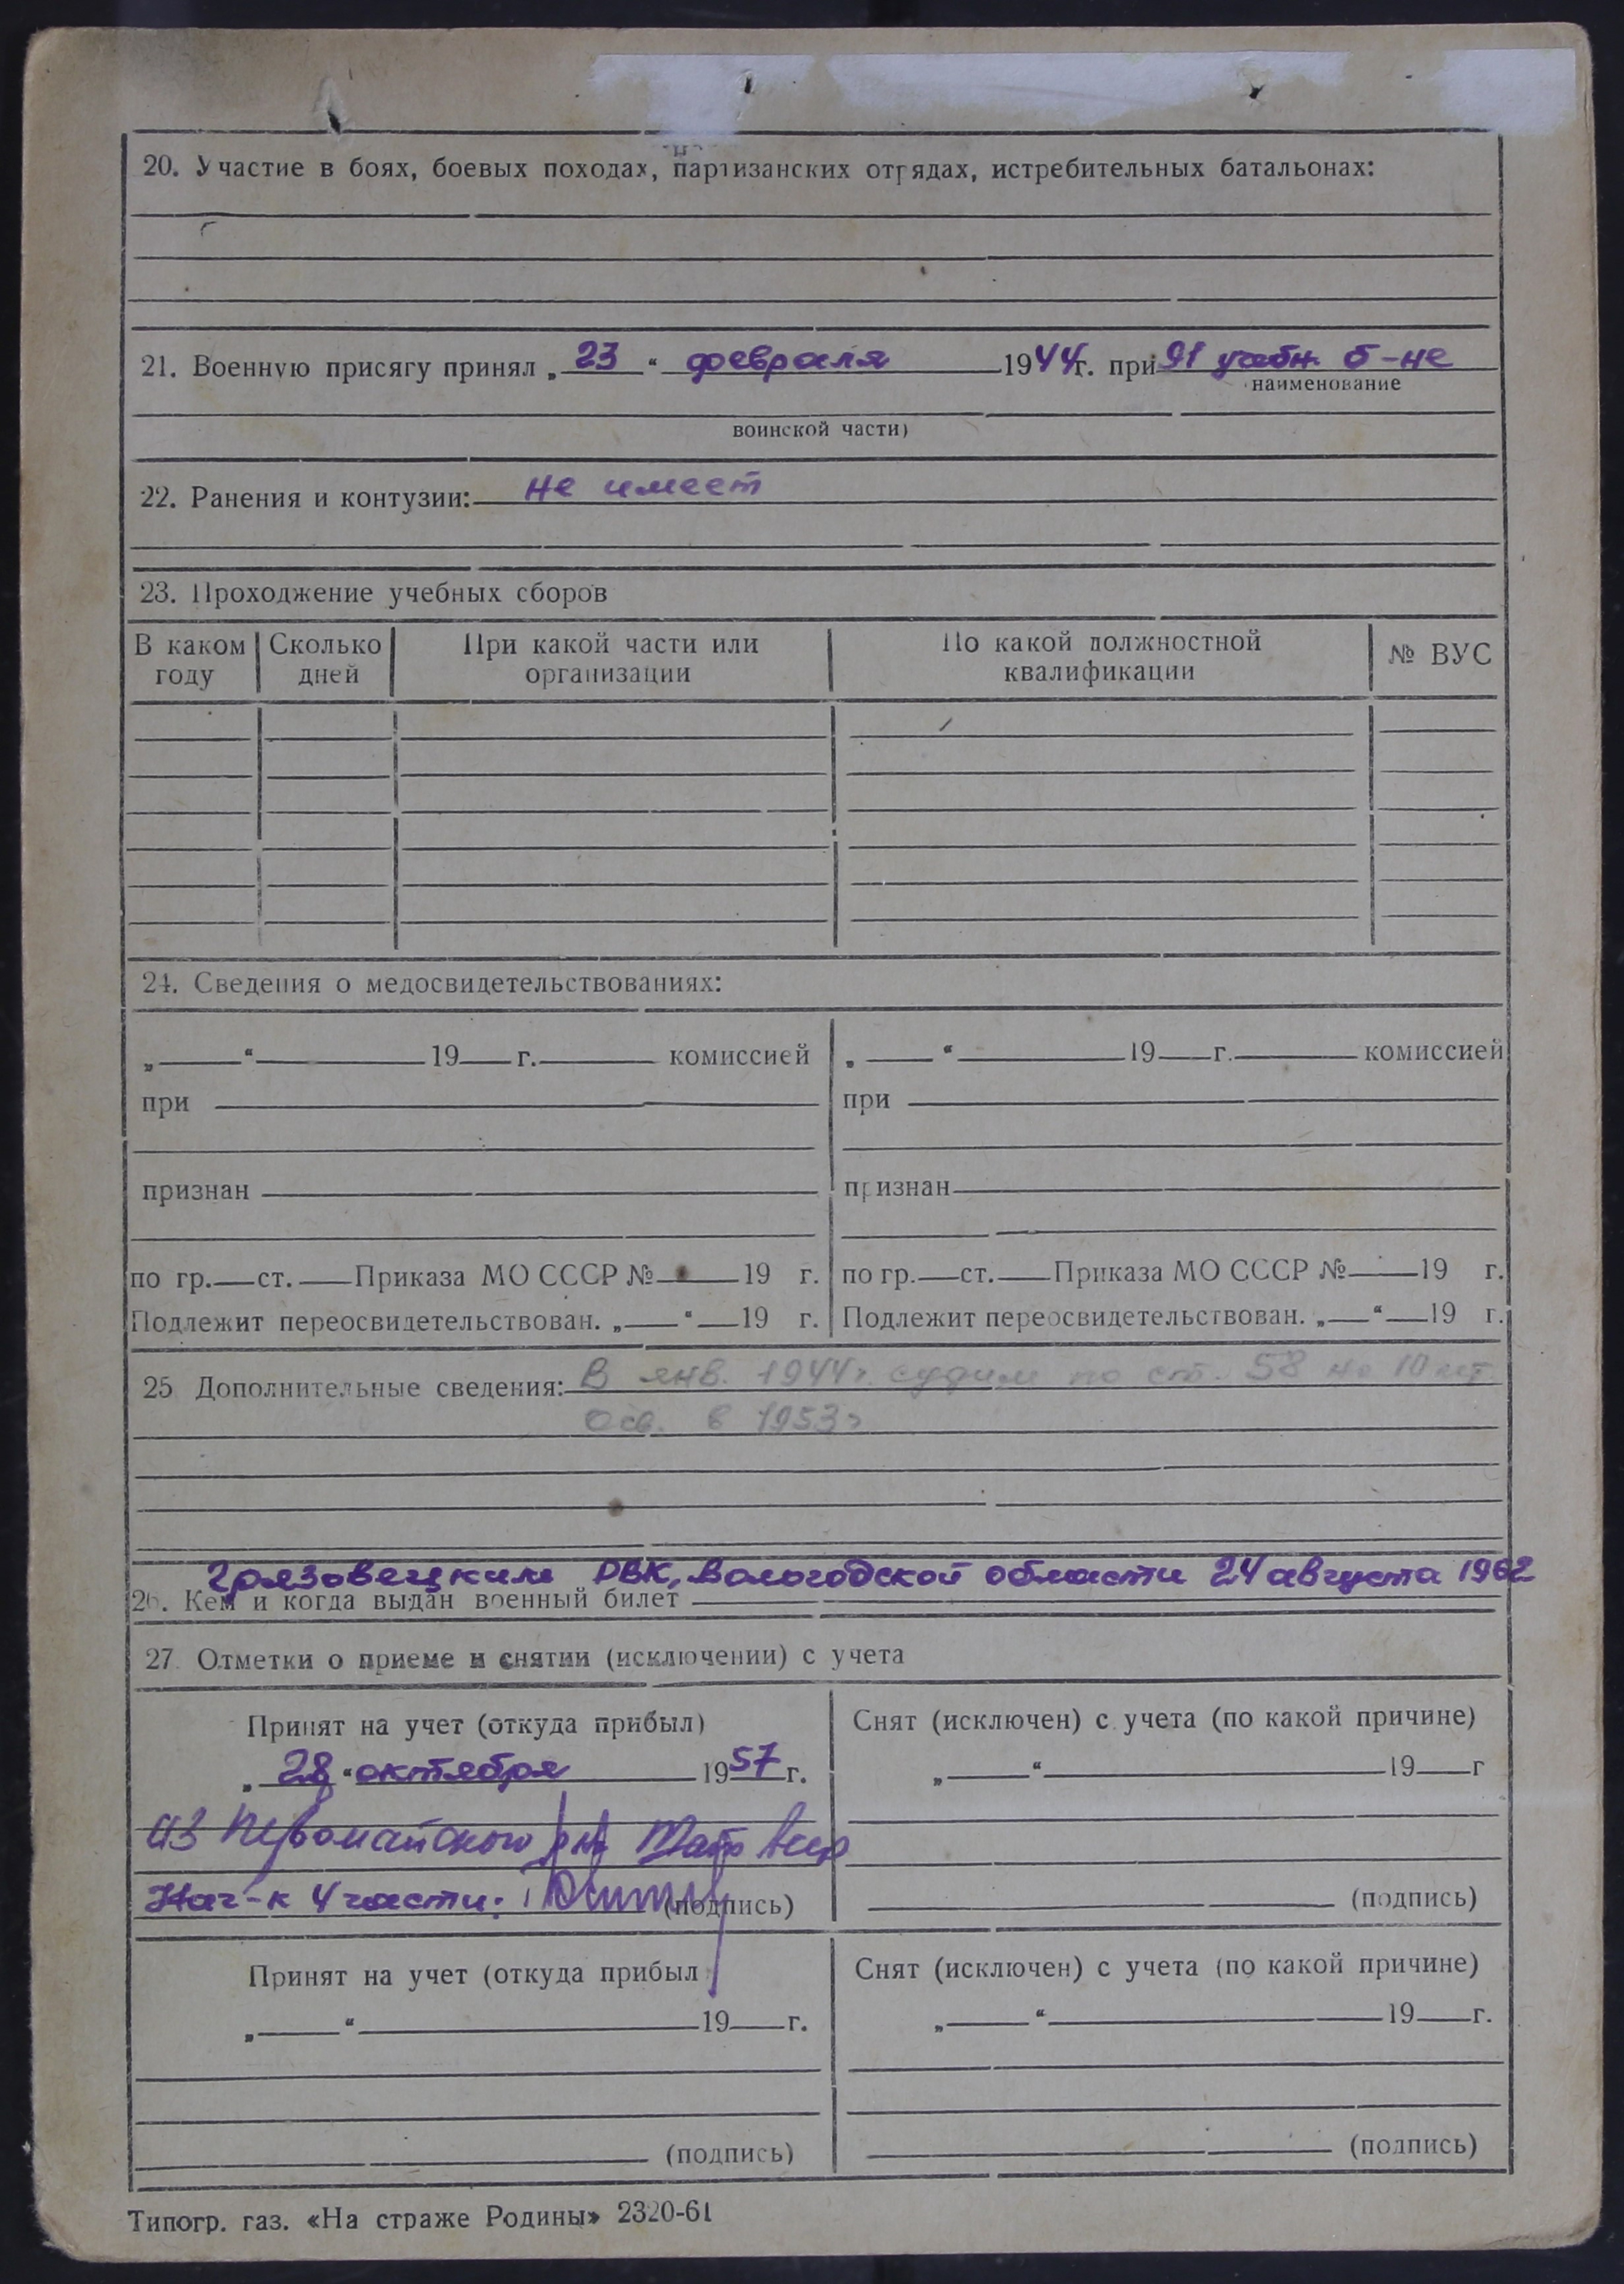 20. Участие в боях, боевых походах, партизанских отрядах, истребительных батальонах:
21. Военную присягу принял „ 23 “ февраля 1944г. при 91 учебн. б-не
наименование
воинской части)
22. Ранения и контузии: не имеет
23. Прохождение учебных сборов
В каком году Сколько дней При какой части или организации По какой должностной квалификации № ВУС
24. Сведения о медосвидетельствованиях:
„ “ 19 г. комиссией „ “ 19 г. комиссией
при при
признан признан
по гр. ст. Приказа МО СССР № 19 г. по гр. ст. Приказа МО СССР № 19 г.
Подлежит переосвидетельствован. „ “ 19 г. Подлежит переосвидетельствован. „ “ 19 г.
25 Дополнительные сведения: В янв. 1944г. судим по ст. 58 на 10 лет
Осв. в 1953г
Грязовецким РВК, Вологодской области 24 августа 1962
26. Кем и когда выдан военный билет
27. Отметки о приеме и снятии (исключении) с учета
Принят на учет (откуда прибыл) Снят (исключен) с учета (по какой причине)
„ 28 “ октября 1957 г. „ “ 19 г
из Первомайского р-на
Нач-к 4 части: (подпись) (подпись)
Принят на учет (откуда прибыл Снят (исключен) с учета (по какой причине)
„ “ 19 г. „ “ 19 г.
(подпись) (подпись)
Типогр. газ. «На страже Родины» 2320-61